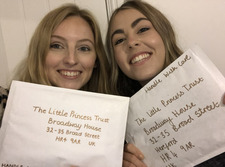 The Little Princess Trust
Broadway House
32-35 Broad Street
HR4 9AR UK
HANDLE
Handle With Care
The Little Princess Trust,
Broadway House
32-35 Broad Street
Hereford
HR4 9AR